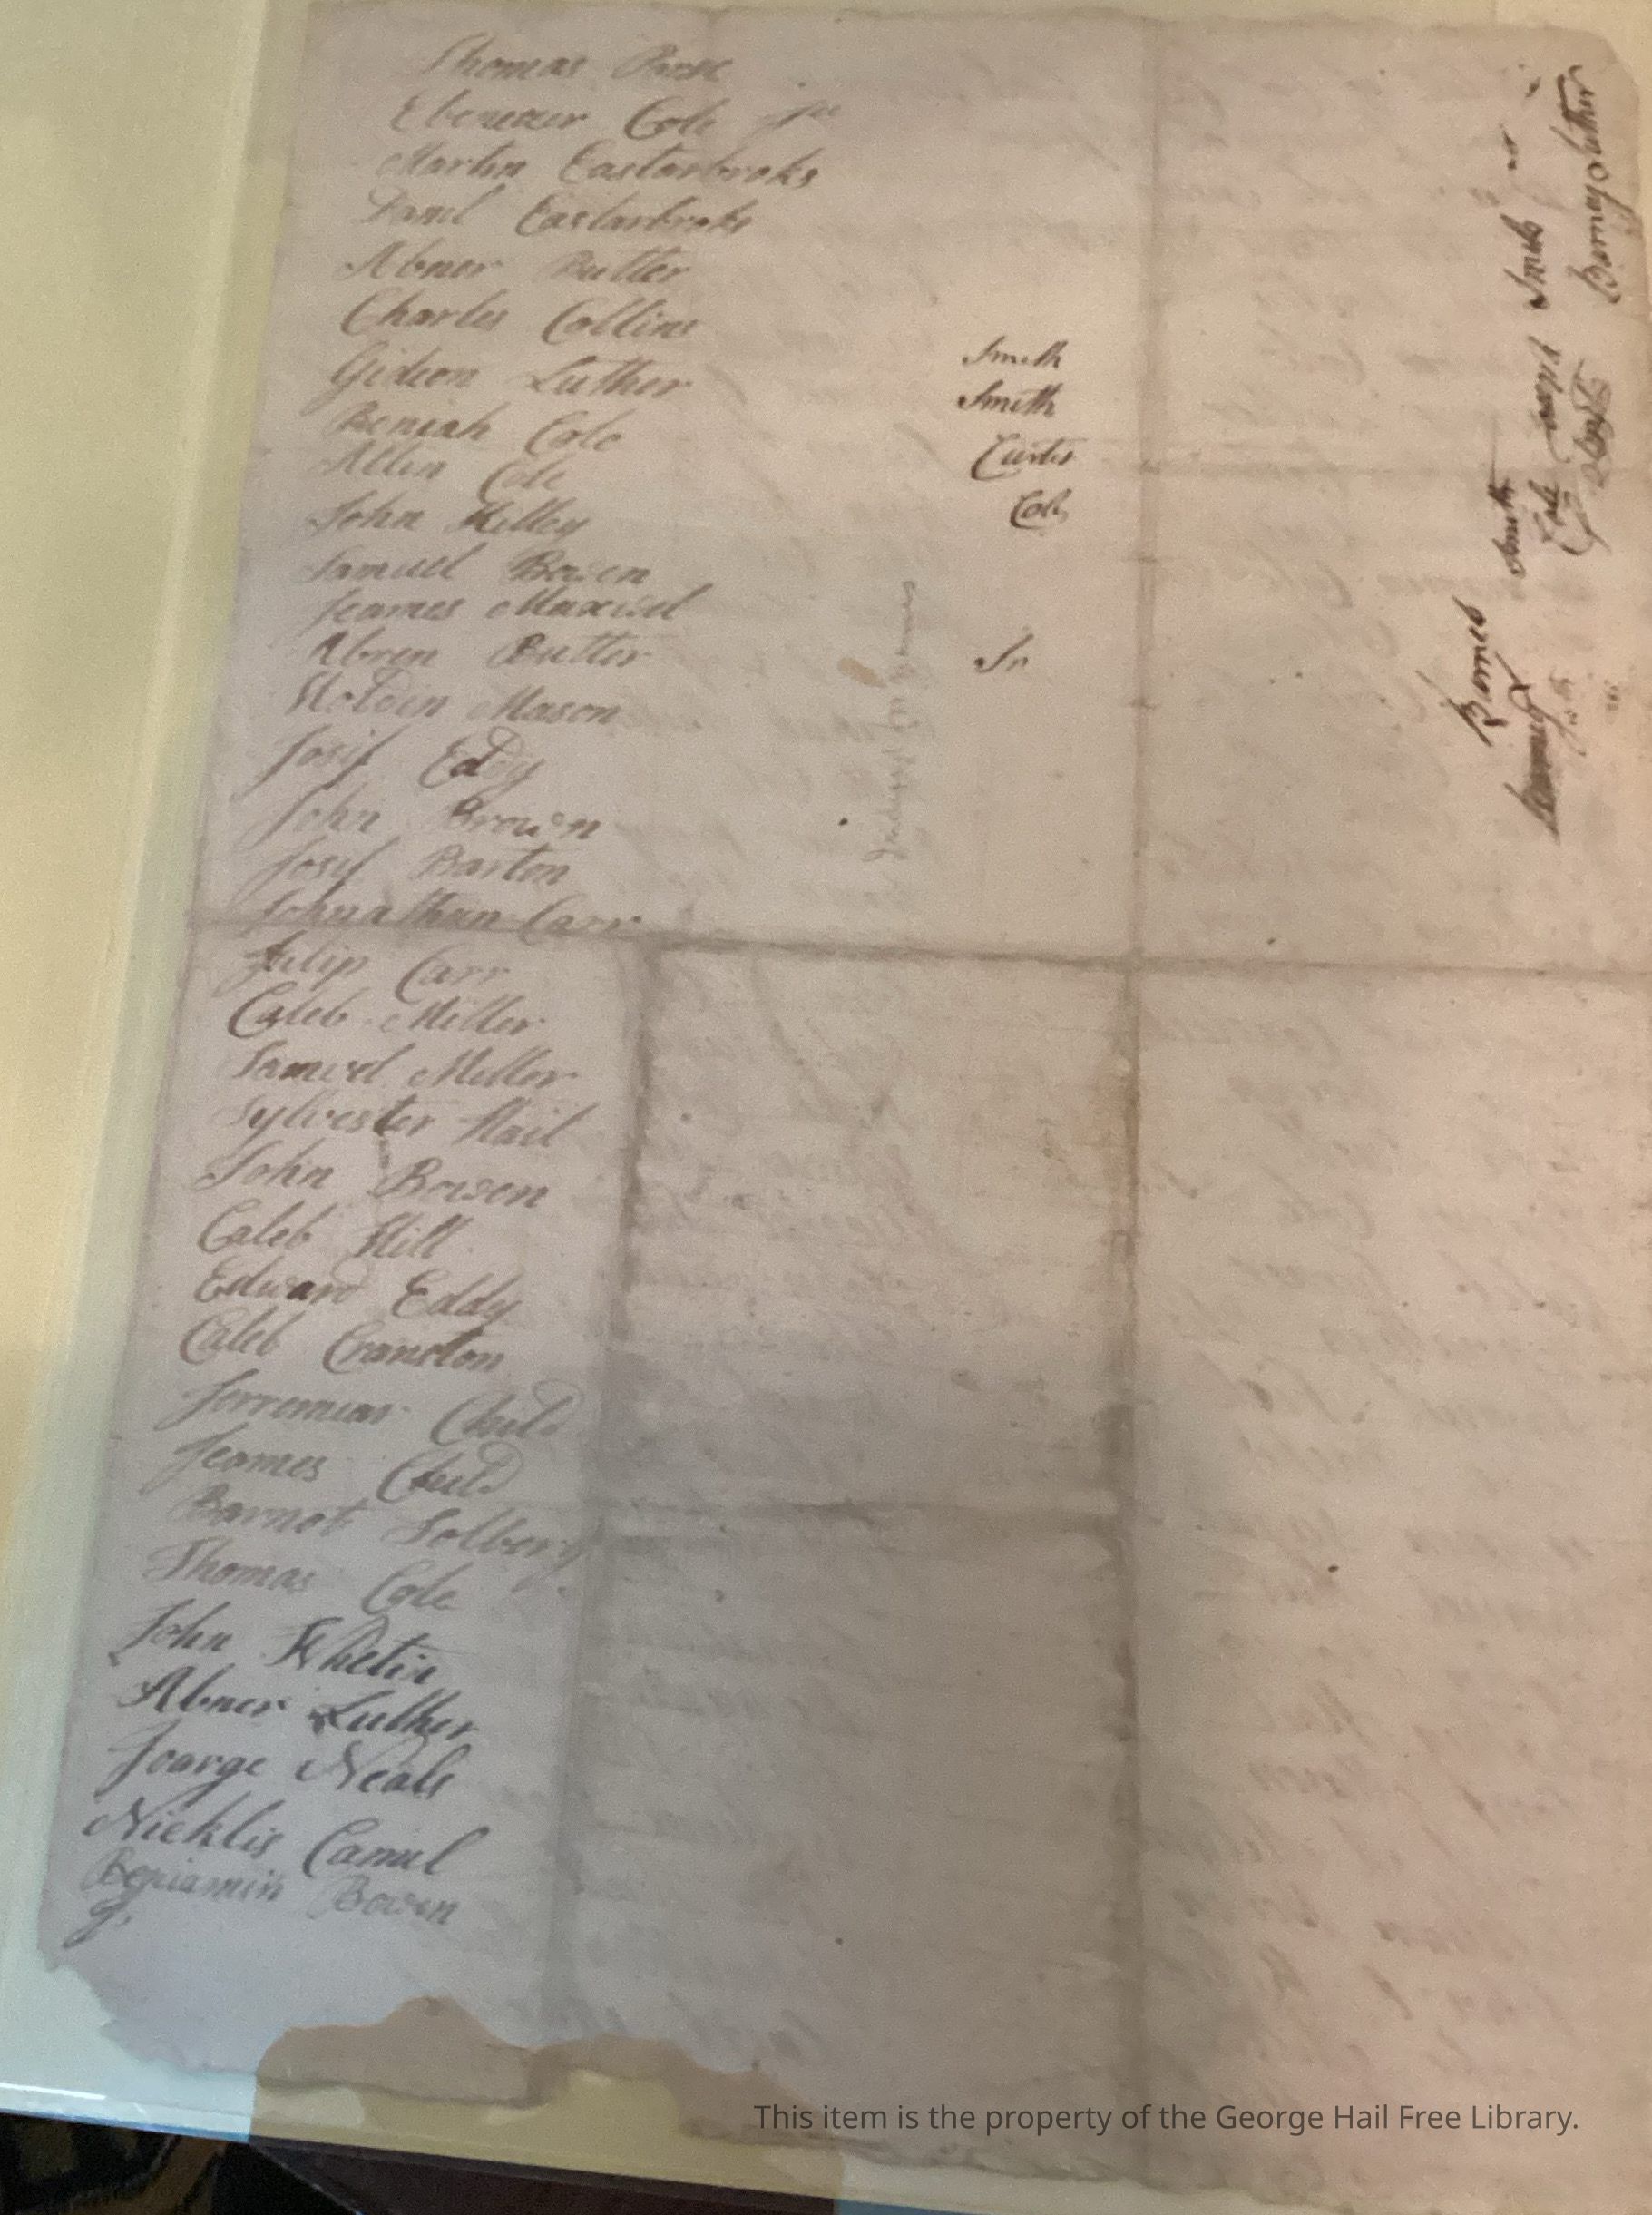 Thomas Rose
Ebenezer Cole Jur
Martin Eastarbroks
Danil Eastarbroks
Abner Butter
Charles Collins
Gideon Luther
Beniah Cole
Allin Cole
John Killey
Samuel Bowen
Jeames Maxwel
Abren Butter
Holden Mason
Josif Eddy
John Brown
Josif Barton
Johnathan Carr
Filip Carr
Caleb Miller
Samuel Miller
Sylvester Hail
John Bowen
Caleb Hill
Edward Eddy
Caleb Cranston
Jerremiar Child
Jeames Child
Barnot Solbery
Thomas Cole
John Whetin
Abner Luther
Joarge Neals
Nicklis Camul
Benjamin Bowen
Smith
Smith
Curtis
Cole
Jr
Barnes
Smith
Cole Smith
Barney Luther
This item is the property of the George Hail Free Library.